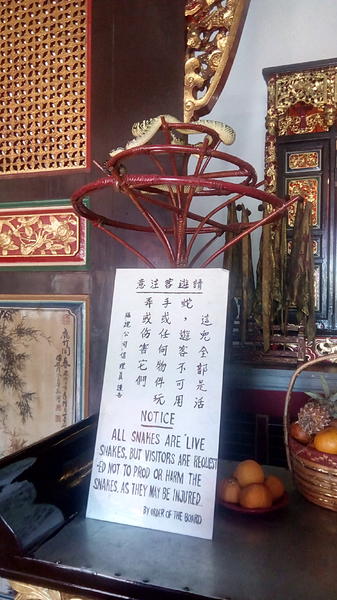 請遊客注意
這兒全部是活
蛇，遊客不可用
手或任何物件玩
弄或伤害它們
福建公司信理員謹告
NOTICE
ALL SNAKES ARE "LIVE
SNAKES, BUT VISITORS ARE REQUEST
-ED NOT TO PROD OR HARM THE
SNAKES, AS THEY MAY BE INJURED
BY ORDER OF THE BOARD